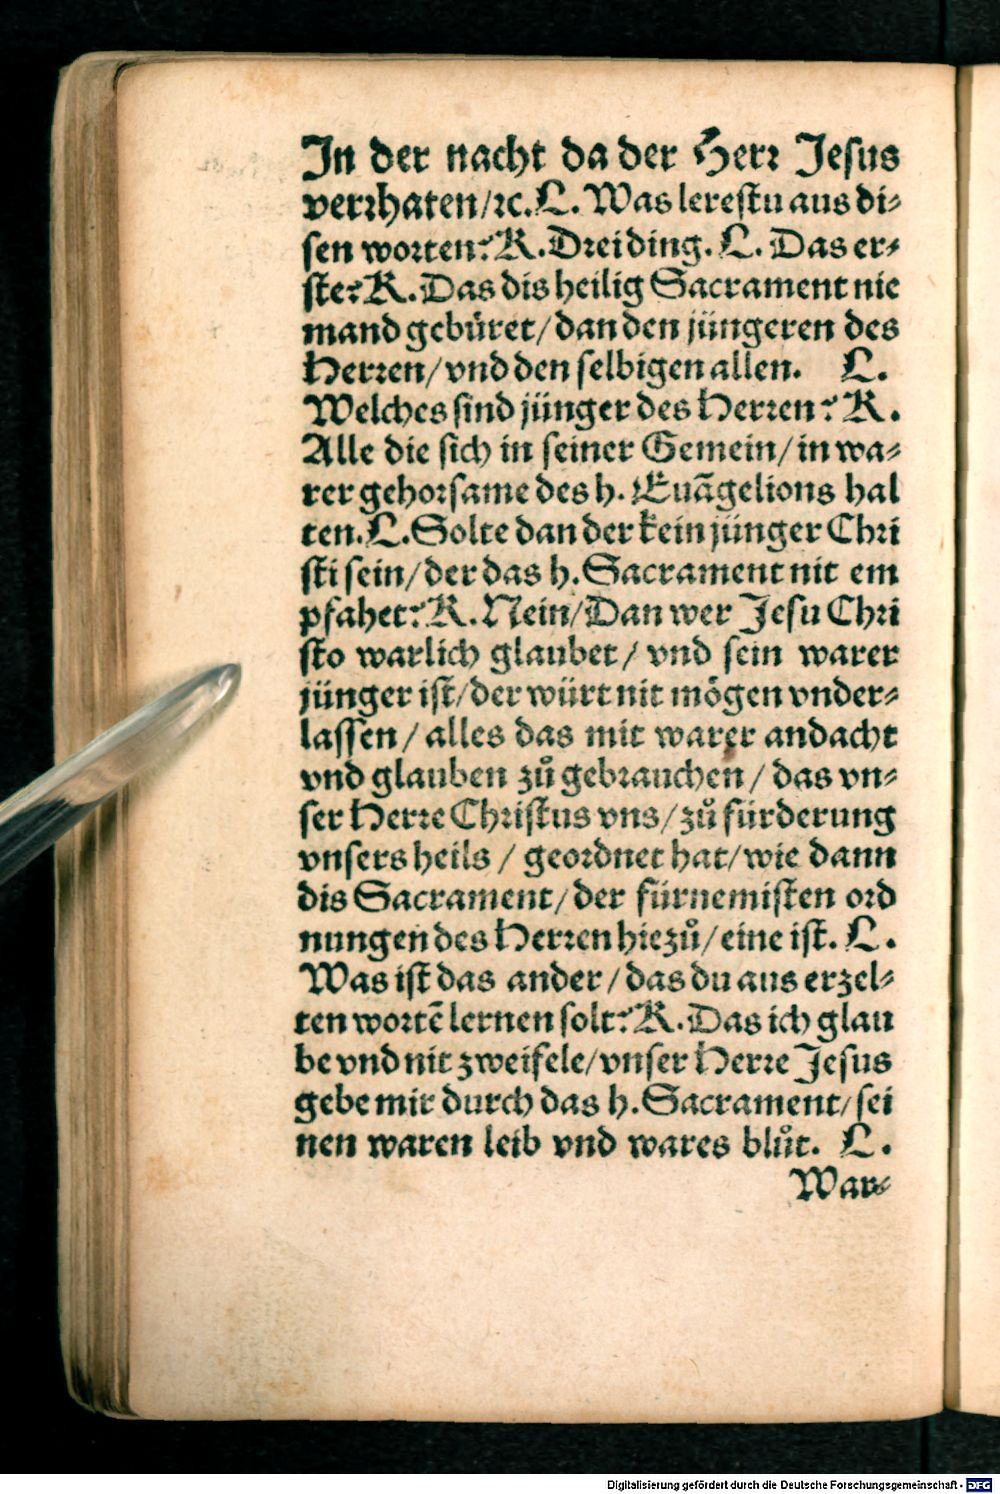 In der nacht da der Herꝛ Jesus
verꝛhaten/ꝛc. L. Was lerestu aus di⸗
sen woꝛten? K. Dꝛei ding. L. Das er⸗
ste? K. Das dis heilig Sacrament nie
mand gebüret/ dan den jüngeren des
Herꝛen/ vnd den selbigen allen. L.
Welches sind jünger des Herꝛen? K.
Alle die sich in seiner Gemein/ in wa⸗
rer gehoꝛsame des h. Euãgelions hal
ten. L. Solte dan der kein jünger Chꝛi
sti sein/ der das h. Sacrament nit em
pfahet? K. Nein/ Dan wer Jesu Chꝛi
sto warlich glaubet/ vnd sein warer
jünger ist/ der würt nit mögen vnder⸗
lassen/ alles das mit warer andacht
vnd glauben zů gebꝛauchen/ das vn⸗
ser Herꝛe Chꝛistus vns/ zů fürderung
vnsers heils/ geoꝛdnet hat/ wie dann
dis Sacrament/ der fürnemisten oꝛd
nungen des Herꝛen hiezů/ eine ist. L.
Was ist das ander/ das du aus erzel⸗
ten woꝛtẽ lernen solt? K. Das ich glau
be vnd nit zweifele/ vnser Herꝛe Jesus
gebe mir durch das h. Sacrament/ sei
nen waren leib vnd wares blůt. L.
War⸗
Digitalisierung gefördert durch die Deutsche Forschungsgemeinschaft - DFG